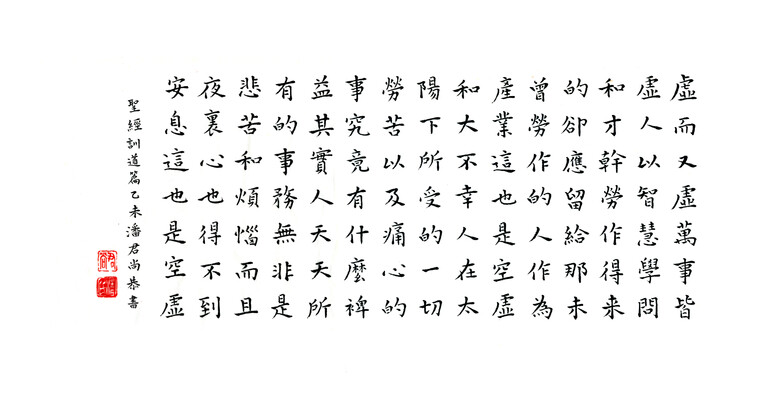 虛而又虛萬事皆
虛人以智慧學問
和才幹勞作得来
的卻應留給那未
曾勞作的人作為
產業這也是空虛
和大不幸人在太
陽下所受的一切
勞苦以及痛心的
事究竟有什麼裨
益其實人天天所
有的事務無非是
悲苦和煩惱而且
夜裏心也得不到
安息這也是空虛
聖經訓道篇乙未潘君尚恭書